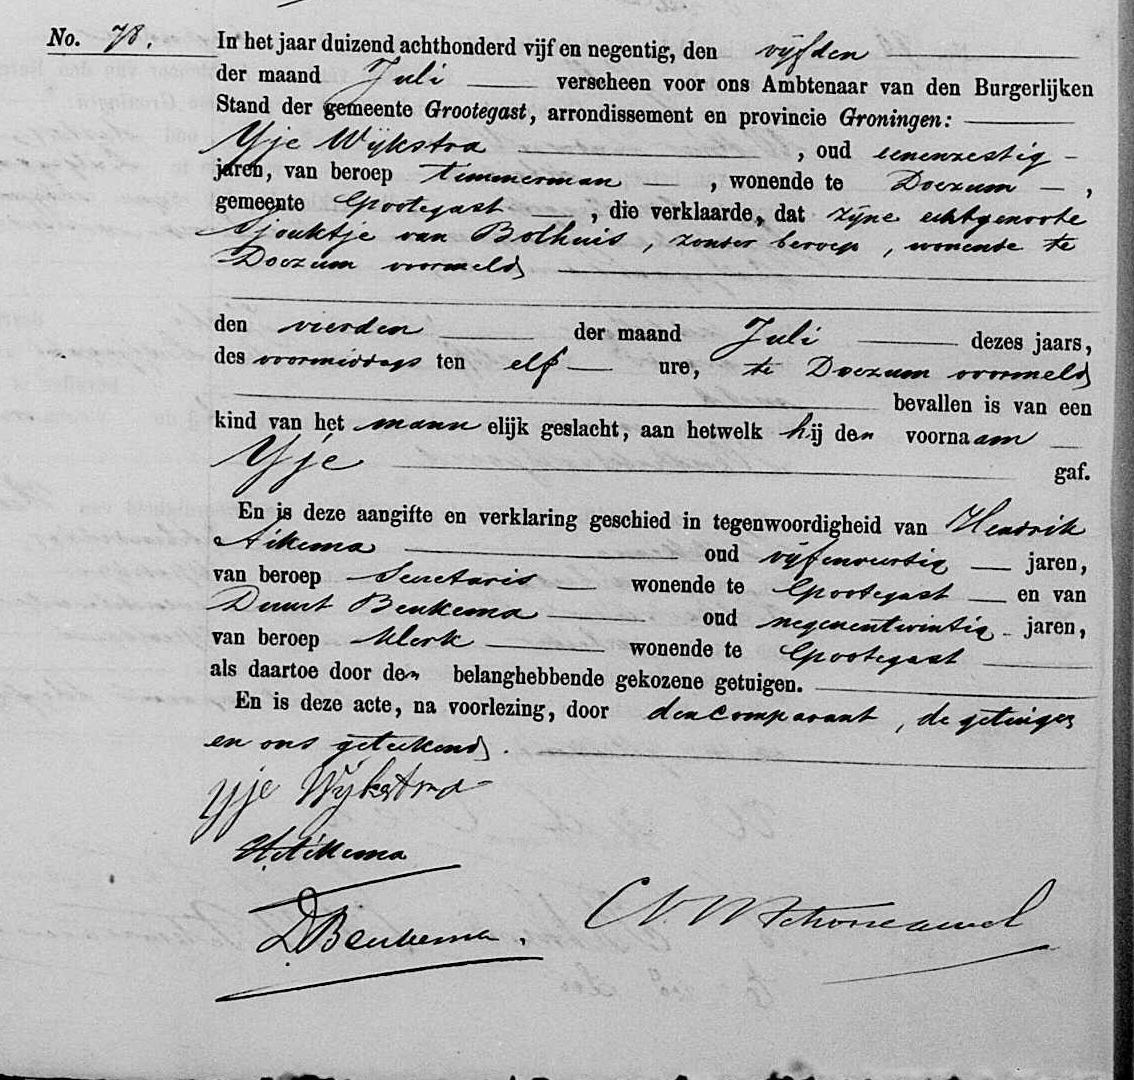 No. 78.
In het jaar duizend achthonderd vijf en negentig, den vijfden
der maand Juli verscheen voor ons Ambtenaar van den Burgerlijken
Stand der gemeente Grootegast, arrondissement en provincie Groningen:
Ytje Wijkstra, oud eenenzestig
jaren, van beroep timmerman, wonende te Doezum,
gemeente Grootegast, die verklaarde, dat zijne echtgenoote
Sjouktje van Bolhuis, zonder beroep, wonende te
Doezum voormeld
den vierden der maand Juli dezes jaars,
des voormiddags ten elf ure, te Doezum voormeld
bevallen is van een
kind van het mannelijk geslacht, aan hetwelk hij den voornaam
Ytje gaf.
En is deze aangifte en verklaring geschied in tegenwoordigheid van Hendrik
Aikema oud vijfenveertig jaren,
van beroep Secretaris wonende te Grootegast en van
Duurt Beukema oud negenentwintig jaren,
van beroep klerk wonende te Grootegast
als daartoe door den belanghebbende gekozene getuigen.
En is deze acte, na voorlezing, door den comparant, de getuigen
en ons geteekend.
Ytje Wijkstra
H. Aikema
D Beukema.